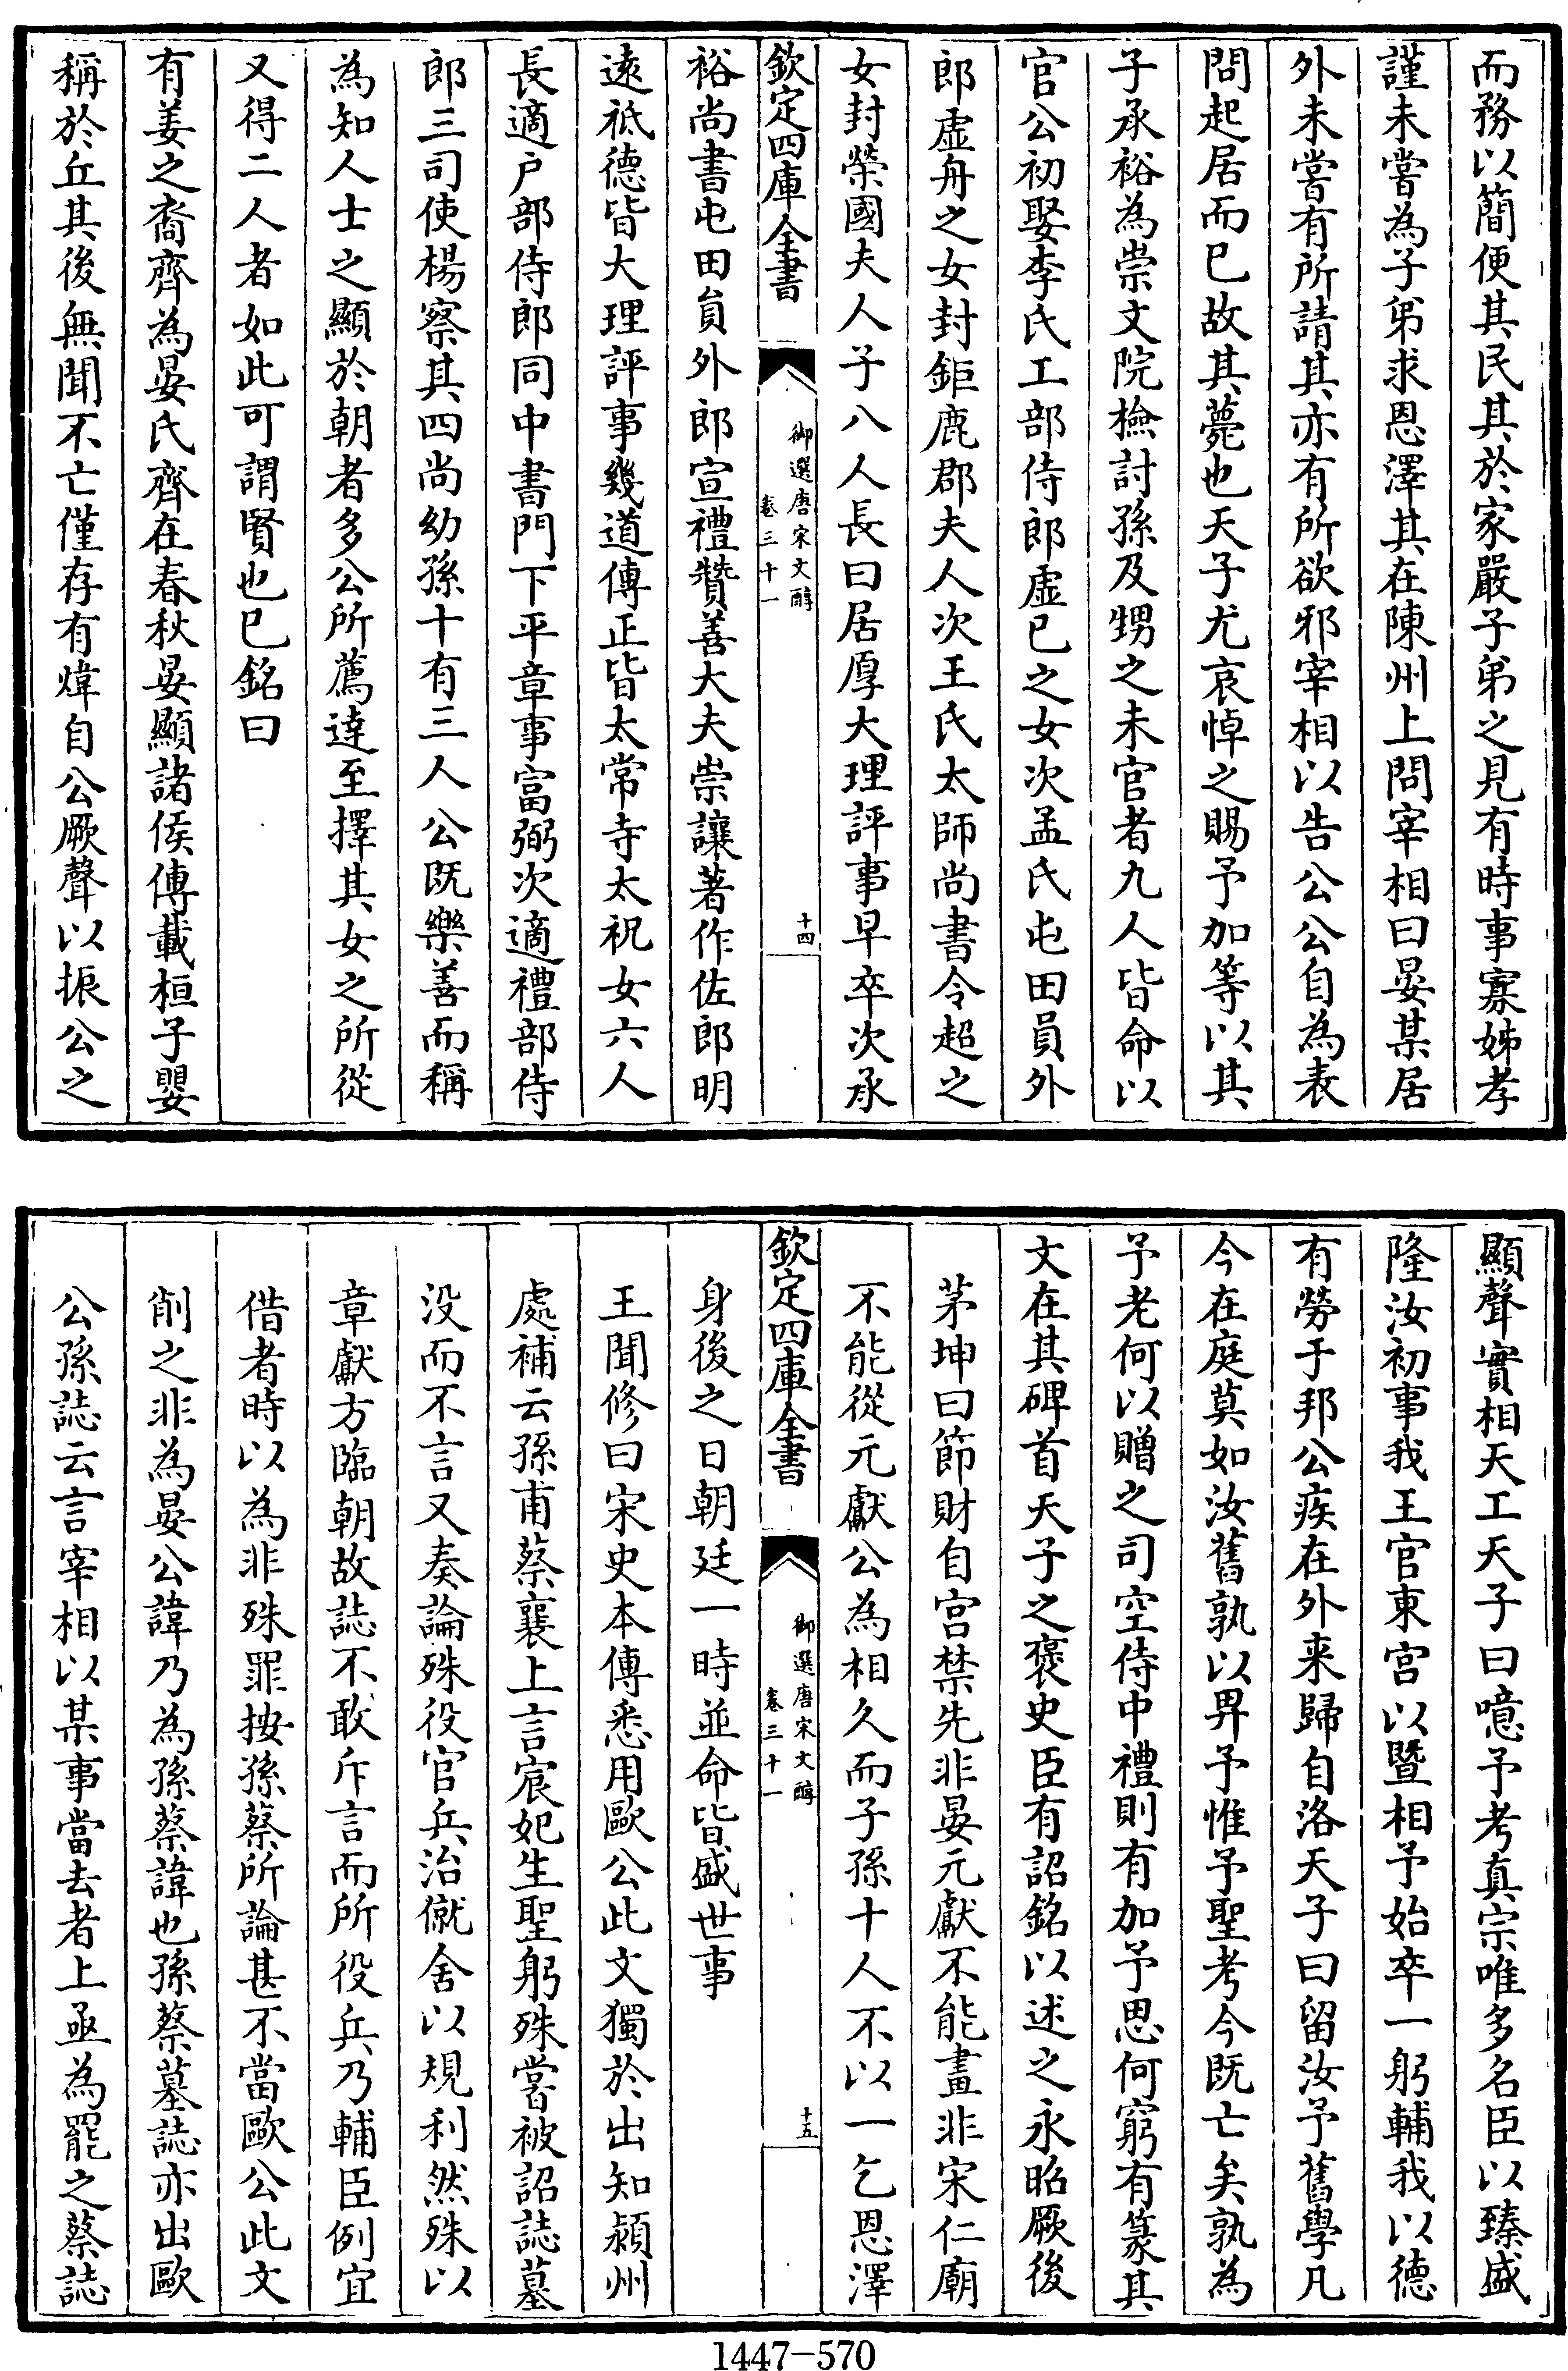 而務以簡便其民其於家嚴子弟之見有時事寡姊孝
謹未嘗為子弟求恩澤其在陳州上問宰相曰晏某居
外未嘗有所請其亦有所欲邪宰相以告公公自為表
問起居而已故其薨也天子尤哀悼之賜予加等以其
子承裕為崇文院檢討孫及甥之未官者九人皆命以
官公初娶李氏工部侍郎虛已之女次孟氏屯田員外
郎虛舟之女封鉅鹿郡夫人次王氏太師尚書令超之
女封榮國夫人子八人長曰居厚大理評事早卒次承
欽定四庫全書
御選唐宋文醇
卷三十一
十四
裕尚書屯田員外郎宣禮贊善大夫崇讓著作佐郎明
遠祗德皆大理評事幾道傳正皆太常寺太祝女六人
長適户部侍郎同中書門下平章事富弼次適禮部侍
郎三司使楊察其四尚幼孫十有三人公既樂善而稱
為知人士之顯於朝者多公所薦達至擇其女之所從
又得二人者如此可謂賢也已銘曰
有姜之裔齊為晏氏齊在春秋晏顯諸侯傳載桓子嬰
稱於丘其後無聞不亡僅存有煒自公厥聲以振公之
顯聲實相天工天子曰噫予考真宗唯多名臣以臻盛
隆汝初事我王官東宫以暨相予始卒一躬輔我以德
有勞于邦公疾在外来歸自洛天子曰留汝予舊學凡
今在庭莫如汝舊孰以畀予惟予聖考今既亡矣孰為
予老何以贈之司空侍中禮則有加予思何窮有篆其
文在其碑首天子之褒史臣有詔銘以述之永昭厥後
茅坤曰節財自宫禁先非晏元獻不能畫非宋仁廟
不能從元獻公為相久而子孫十人不以一乞恩澤
欽定四庫全書
御選唐宋文醇
卷三十一
十五
身後之日朝廷一時並命皆盛世事
王聞修曰宋史本傳悉用歐公此文獨於出知潁州
處補云孫甫蔡襄上言宸妃生聖躬殊嘗被詔誌墓
没而不言又奏論殊役官兵治僦舍以規利然殊以
章獻方臨朝故誌不敢斥言而所役兵乃輔臣例宜
借者時以為非殊罪按孫蔡所論甚不當歐公此文
削之非為晏公諱乃為孫蔡諱也孫蔡墓誌亦出歐
公孫誌云言宰相以某事當去者上亟為罷之蔡誌
1447-570